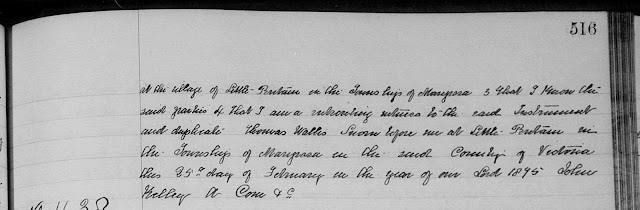 516
at the village of Little Britain in the Township of Mariposa 3 That I know the
said parties 4 That I am a subscribing witness to the said Instrument
and duplicate Thomas Wallis Sworn before me at Little Britain in
the Township of Mariposa in the said County of Victoria
this 25th day of February in the year of our Lord 1895 John
Kelley A Com & c